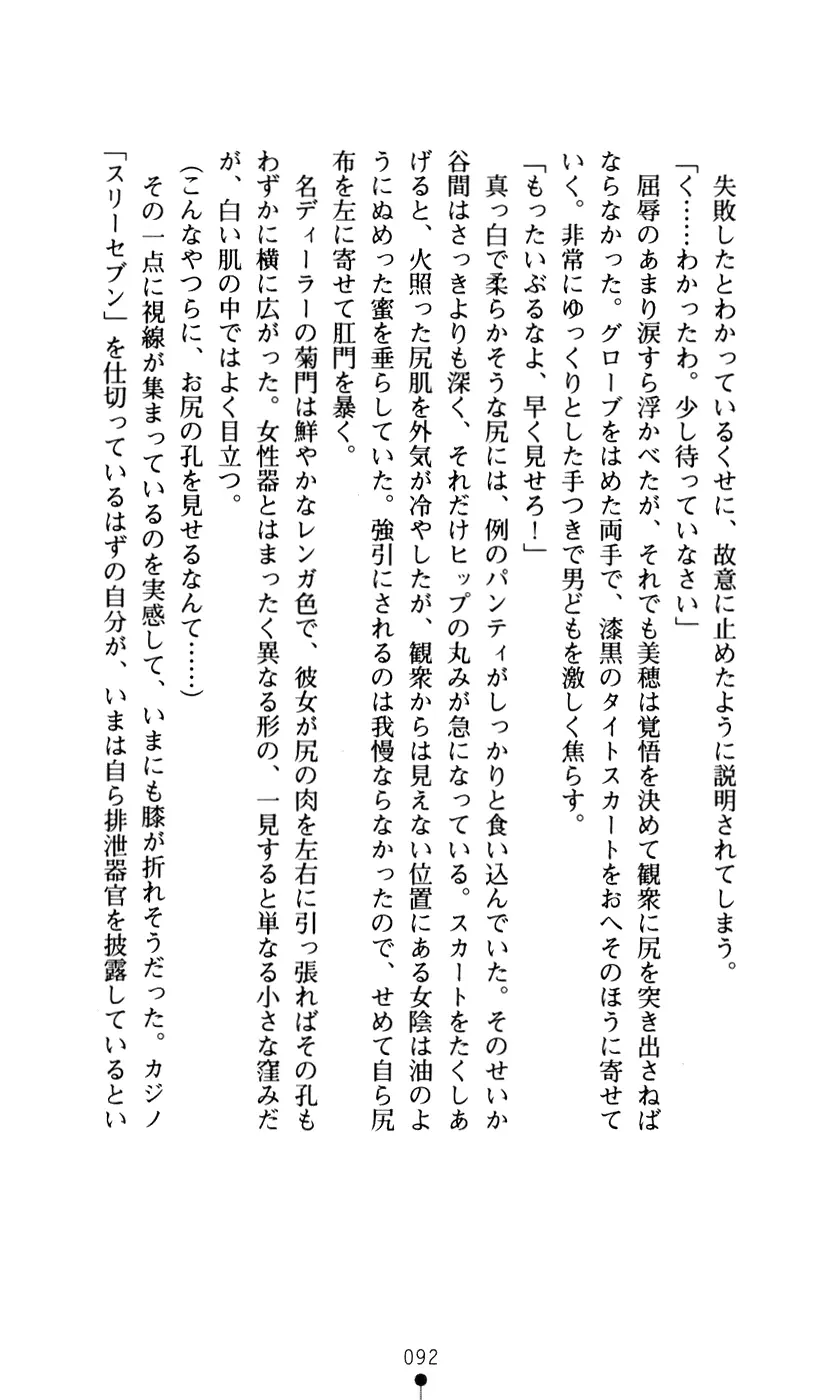 失敗したとわかっているくせに、故意に止めたように説明されてしまう。
「く……わかったわ。少し待っていなさい」
屈辱のあまり涙すら浮かべたが、それでも美穂は覚悟を決めて観衆に尻を突き出さねば
ならなかった。グローブをはめた両手で、漆黒のタイトスカートをおへそのほうに寄せて
いく。非常にゆっくりとした手つきで男どもを激しく焦らす。
「もったいぶるなよ、早く見せろ！」
真っ白で柔らかそうな尻には、例のパンティがしっかりと食い込んでいた。そのせいか
谷間はさっきよりも深く、それだけヒップの丸みが急になっている。スカートをたくしあ
げると、火照った尻肌を外気が冷やしたが、観衆からは見えない位置にある女陰は油のよ
うにぬめった蜜を垂らしていた。強引にされるのは我慢ならなかったので、せめて自ら尻
布を左に寄せて肛門を暴く。
名ディーラーの菊門は鮮やかなレンガ色で、彼女が尻の肉を左右に引っ張ればその孔も
わずかに横に広がった。女性器とはまったく異なる形の、一見すると単なる小さな窪みだ
が、白い肌の中ではよく目立つ。
（こんなやつらに、お尻の孔を見せるなんて……）
その一点に視線が集まっているのを実感して、いまにも膝が折れそうだった。カジノ
「スリーセブン」を仕切っているはずの自分が、いまは自ら排泄器官を披露しているとい
092